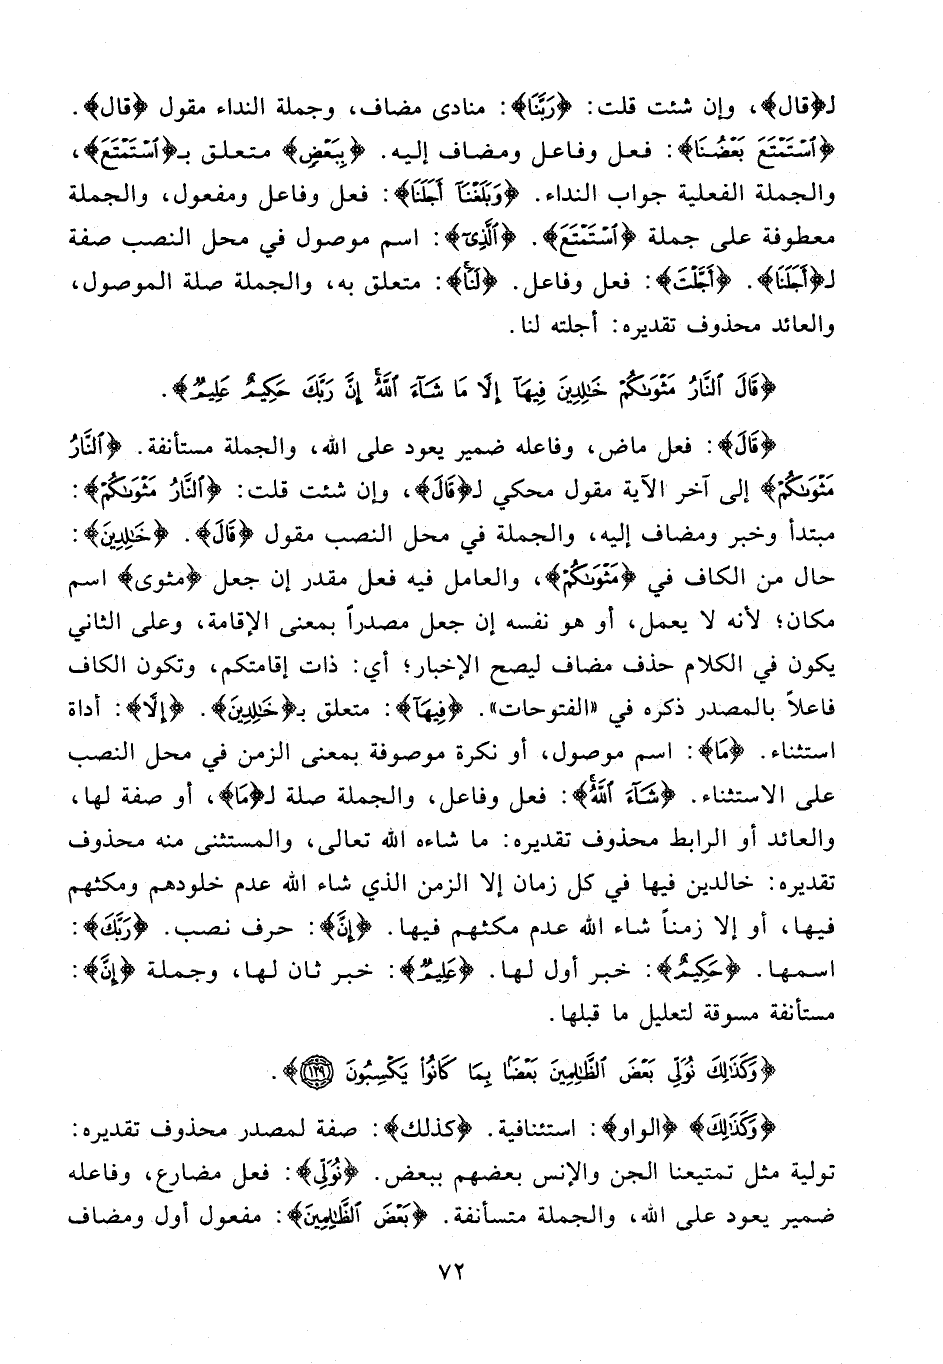 لـ﴿قال﴾، وإن شئت قلت: ﴿رَبَّنَا﴾: منادى مضاف، وجملة النداء مقول ﴿قال﴾.
﴿ٱسْتَمْتَعَ بَعْضُنَا﴾: فعل وفاعل ومضاف إليه. ﴿بِبَعْضٍ﴾ متعلق بـ﴿ٱسْتَمْتَعَ﴾،
والجملة الفعلية جواب النداء. ﴿وَبَلَغْنَآ أَجَلَنَا﴾: فعل وفاعل ومفعول، والجملة
معطوفة على جملة ﴿ٱسْتَمْتَعَ﴾. ﴿ٱلَّذِىٓ﴾: اسم موصول في محل النصب صفة
لـ﴿أَجَلَنَا﴾. ﴿أَجَّلْتَ﴾: فعل وفاعل. ﴿لَنَا﴾: متعلق به، والجملة صلة الموصول،
والعائد محذوف تقديره: أجلته لنا.
﴿قَالَ ٱلنَّارُ مَثْوَىٰكُمْ خَٰلِدِينَ فِيهَآ إِلَّا مَا شَآءَ ٱللَّهُ إِنَّ رَبَّكَ حَكِيمٌ عَلِيمٌ﴾.
﴿قَالَ﴾: فعل ماض، وفاعله ضمير يعود على الله، والجملة مستأنفة. ﴿ٱلنَّارُ
مَثْوَىٰكُمْ﴾ إلى آخر الآية مقول محكي لـ﴿قَالَ﴾، وإن شئت قلت: ﴿ٱلنَّارُ مَثْوَىٰكُمْ﴾:
مبتدأ وخبر ومضاف إليه، والجملة في محل النصب مقول ﴿قَالَ﴾. ﴿خَٰلِدِينَ﴾:
حال من الكاف في ﴿مَثْوَىٰكُمْ﴾، والعامل فيه فعل مقدر إن جعل ﴿مثوى﴾ اسم
مكان؛ لأنه لا يعمل، أو هو نفسه إن جعل مصدراً بمعنى الإقامة، وعلى الثاني
يكون في الكلام حذف مضاف ليصح الإخبار؛ أي: ذات إقامتكم، وتكون الكاف
فاعلاً بالمصدر ذكره في «الفتوحات». ﴿فِيهَآ﴾: متعلق بـ﴿خَٰلِدِينَ﴾. ﴿إِلَّا﴾: أداة
استثناء. ﴿مَا﴾: اسم موصول، أو نكرة موصوفة بمعنى الزمن في محل النصب
على الاستثناء. ﴿شَآءَ ٱللَّهُ﴾: فعل وفاعل، والجملة صلة لـ﴿مَا﴾، أو صفة لها،
والعائد أو الرابط محذوف تقديره: ما شاءه الله تعالى، والمستثنى منه محذوف
تقديره: خالدين فيها في كل زمان إلا الزمن الذي شاء الله عدم خلودهم ومكثهم
فيها، أو إلا زمناً شاء الله عدم مكثهم فيها. ﴿إِنَّ﴾: حرف نصب. ﴿رَبَّكَ﴾:
اسمها. ﴿حَكِيمٌ﴾: خبر أول لها. ﴿عَلِيمٌ﴾: خبر ثان لها، وجملة ﴿إِنَّ﴾:
مستأنفة مسوقة لتعليل ما قبلها.
﴿وَكَذَٰلِكَ نُوَلِّى بَعْضَ ٱلظَّٰلِمِينَ بَعْضًۢا بِمَا كَانُوا۟ يَكْسِبُونَ ١٢٩﴾.
﴿وَكَذَٰلِكَ﴾ ﴿الواو﴾: استئنافية. ﴿كذلك﴾: صفة لمصدر محذوف تقديره:
تولية مثل تمتيعنا الجن والإنس بعضهم ببعض. ﴿نُوَلِّى﴾: فعل مضارع، وفاعله
ضمير يعود على الله، والجملة متسأنفة. ﴿بَعْضَ ٱلظَّٰلِمِينَ﴾: مفعول أول ومضاف
٧٢